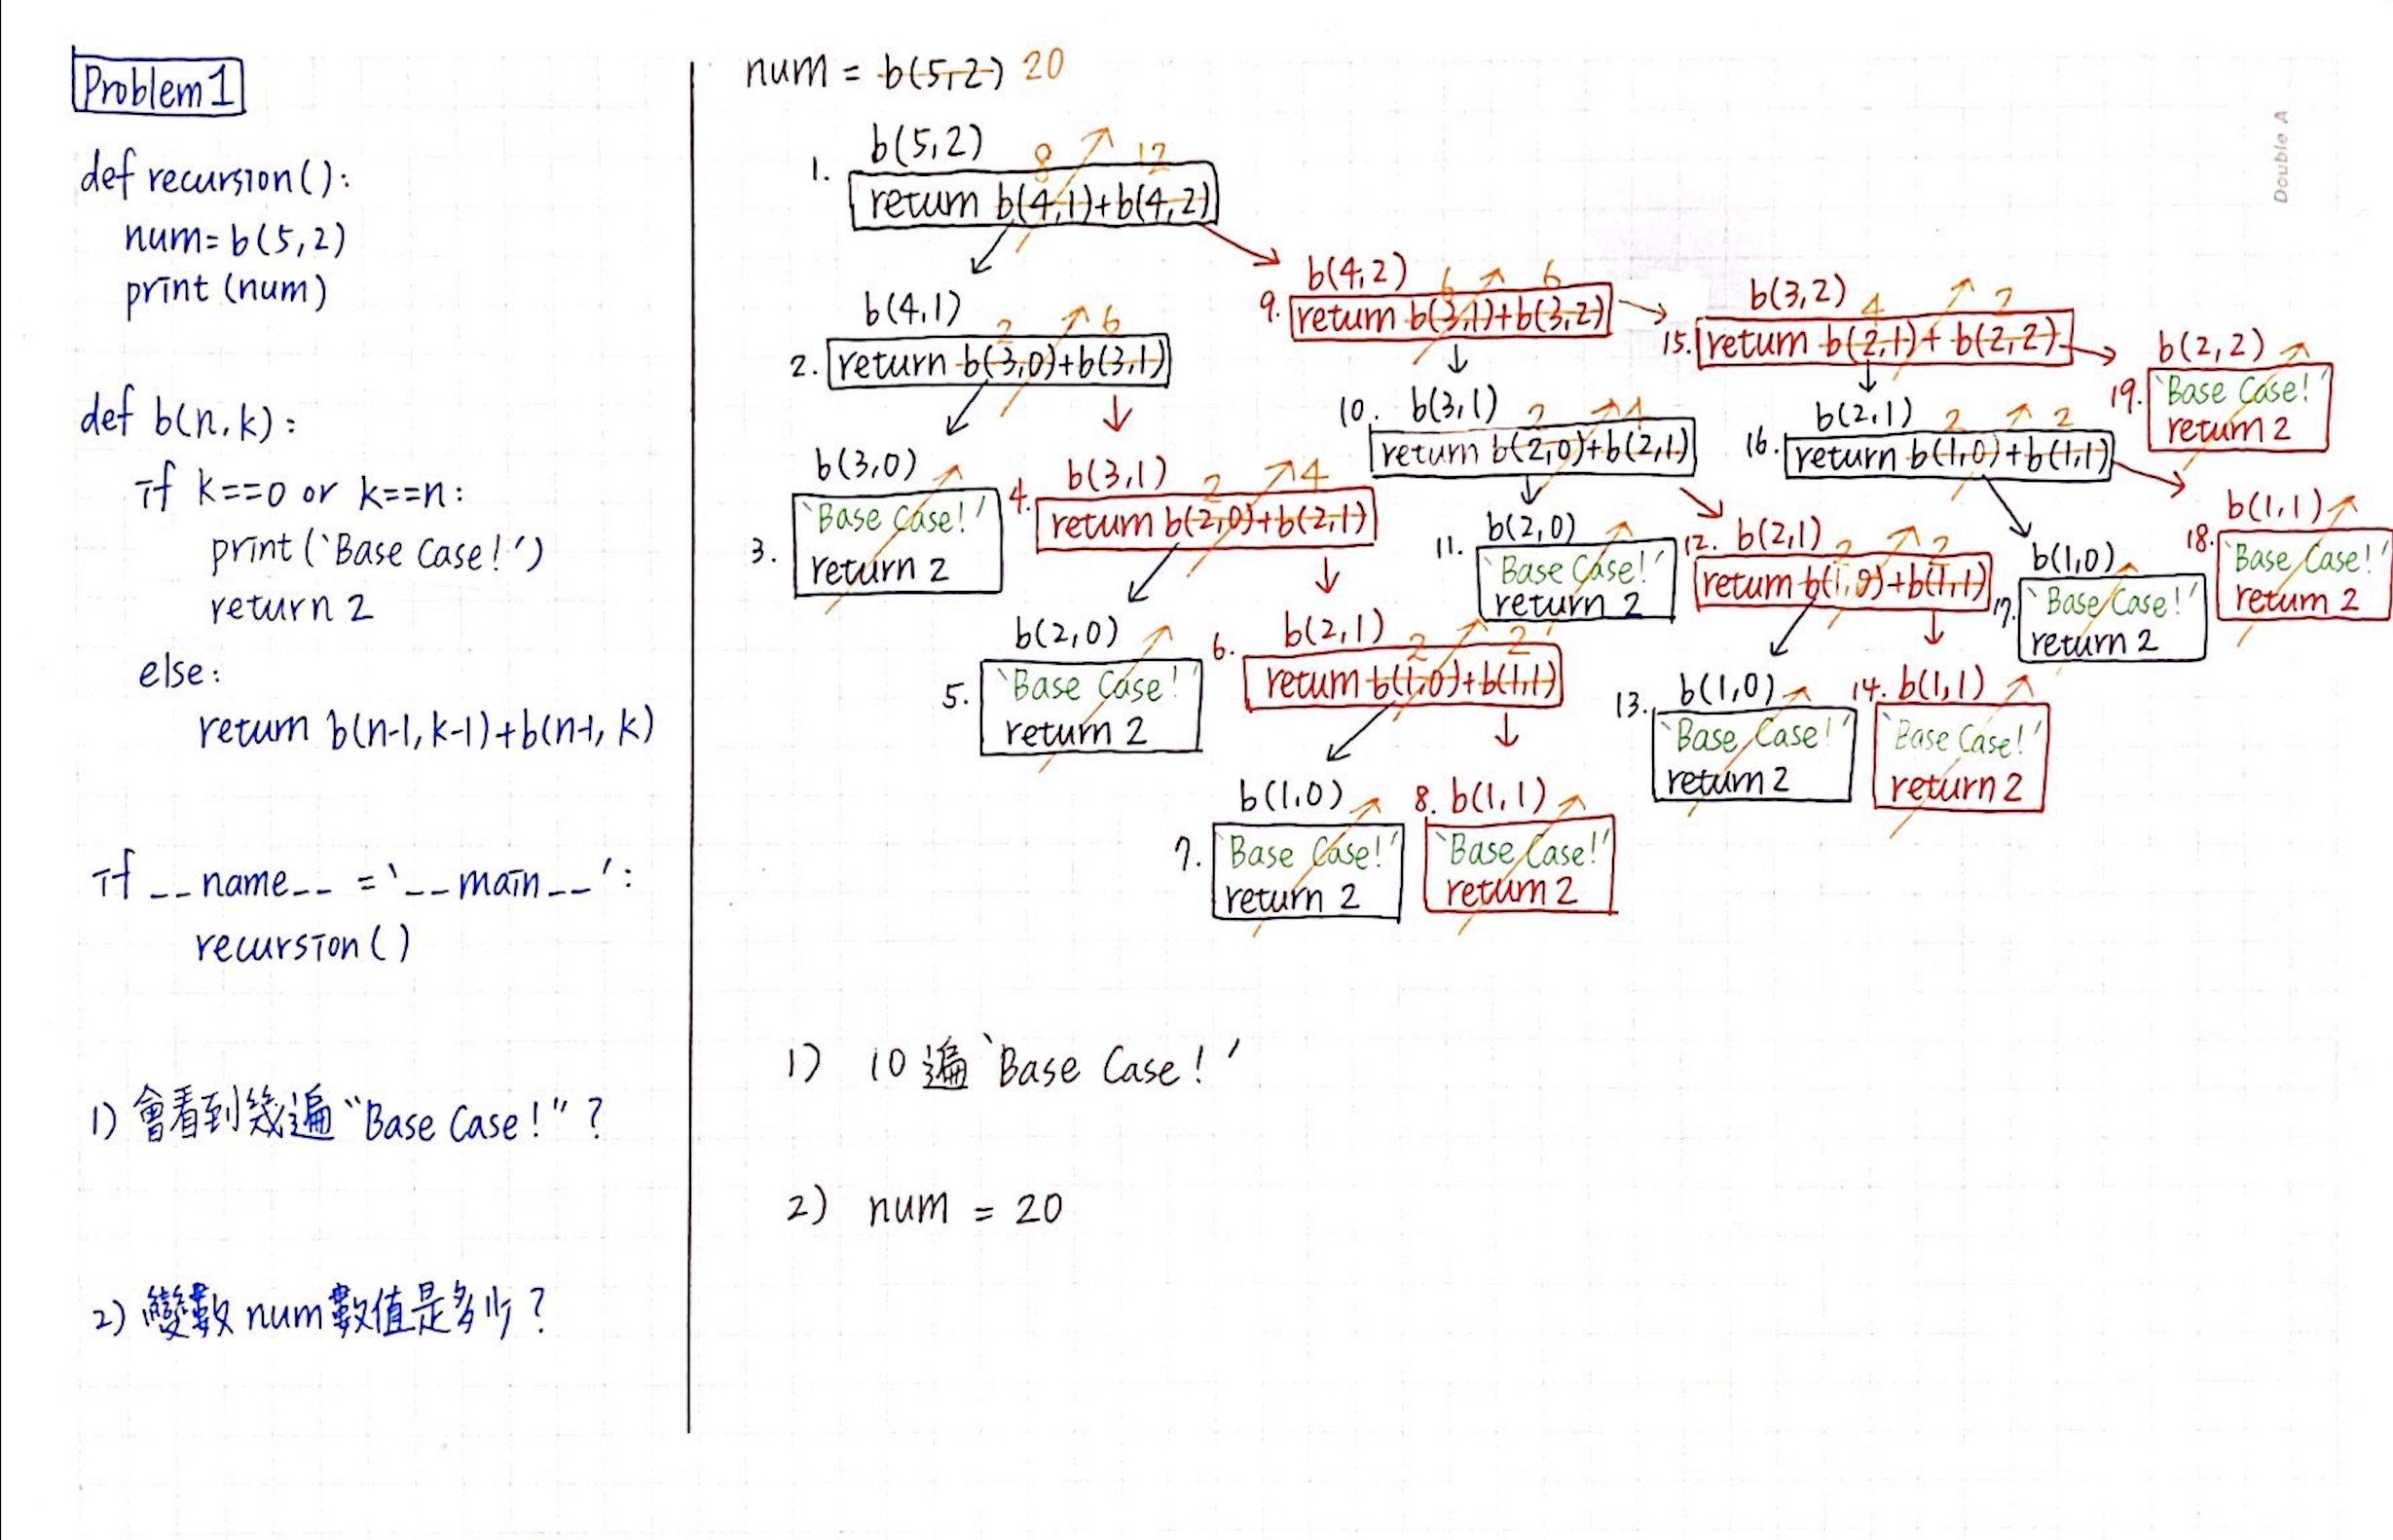 Problem 1
def recursion():
num=b(5,2)
print (num)
def b(n,k):
if k==0 or k==n:
print (`Base Case!')
return 2
else:
return b(n-1,k-1)+b(n-1,k)
if __name__ = '__main__':
recursion()
1) 會看到幾遍“Base Case!"?
2) 變數 num 數值是多少?
num = b(5,2) 20
b(5,2)
8 12
1. return b(4,1)+b(4,2)
b(4,1)
2 6
2. return b(3,0)+b(3,1)
b(3,0)
3. `Base Case!'
return 2
b(3,1)
2 4
4. return b(2,0)+b(2,1)
b(2,0)
5. `Base Case!'
return 2
b(2,1)
2 2
6. return b(1,0)+b(1,1)
b(1,0)
7. `Base Case!'
return 2
8. b(1,1)
`Base Case!'
return 2
b(4,2)
6 6
9. return b(3,1)+b(3,2)
10. b(3,1)
2 4
return b(2,0)+b(2,1)
b(2,0)
11. `Base Case!'
return 2
12. b(2,1)
2 2
return b(1,0)+b(1,1)
13. b(1,0)
`Base Case!'
return 2
14. b(1,1)
`Base Case!'
return 2
b(3,2)
4 2
15. return b(2,1)+b(2,2)
b(2,1)
2 2
16. return b(1,0)+b(1,1)
b(1,0)
17. `Base Case!'
return 2
b(1,1)
18. `Base Case!'
return 2
b(2,2)
19. `Base Case!'
return 2
1) 10遍 `Base Case!'
2) num = 20
Double A